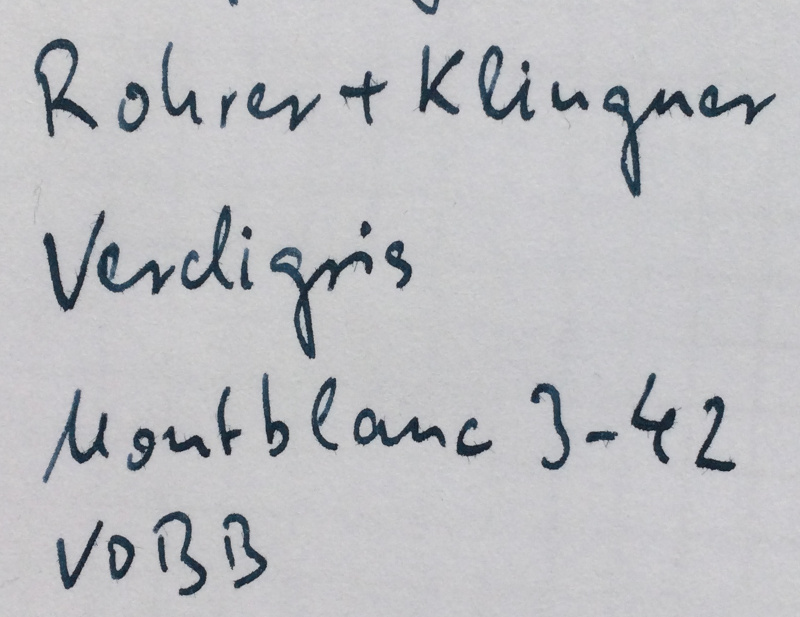 Rohrer + Klingner
Verdigris
Montblanc 3-42
VOBB